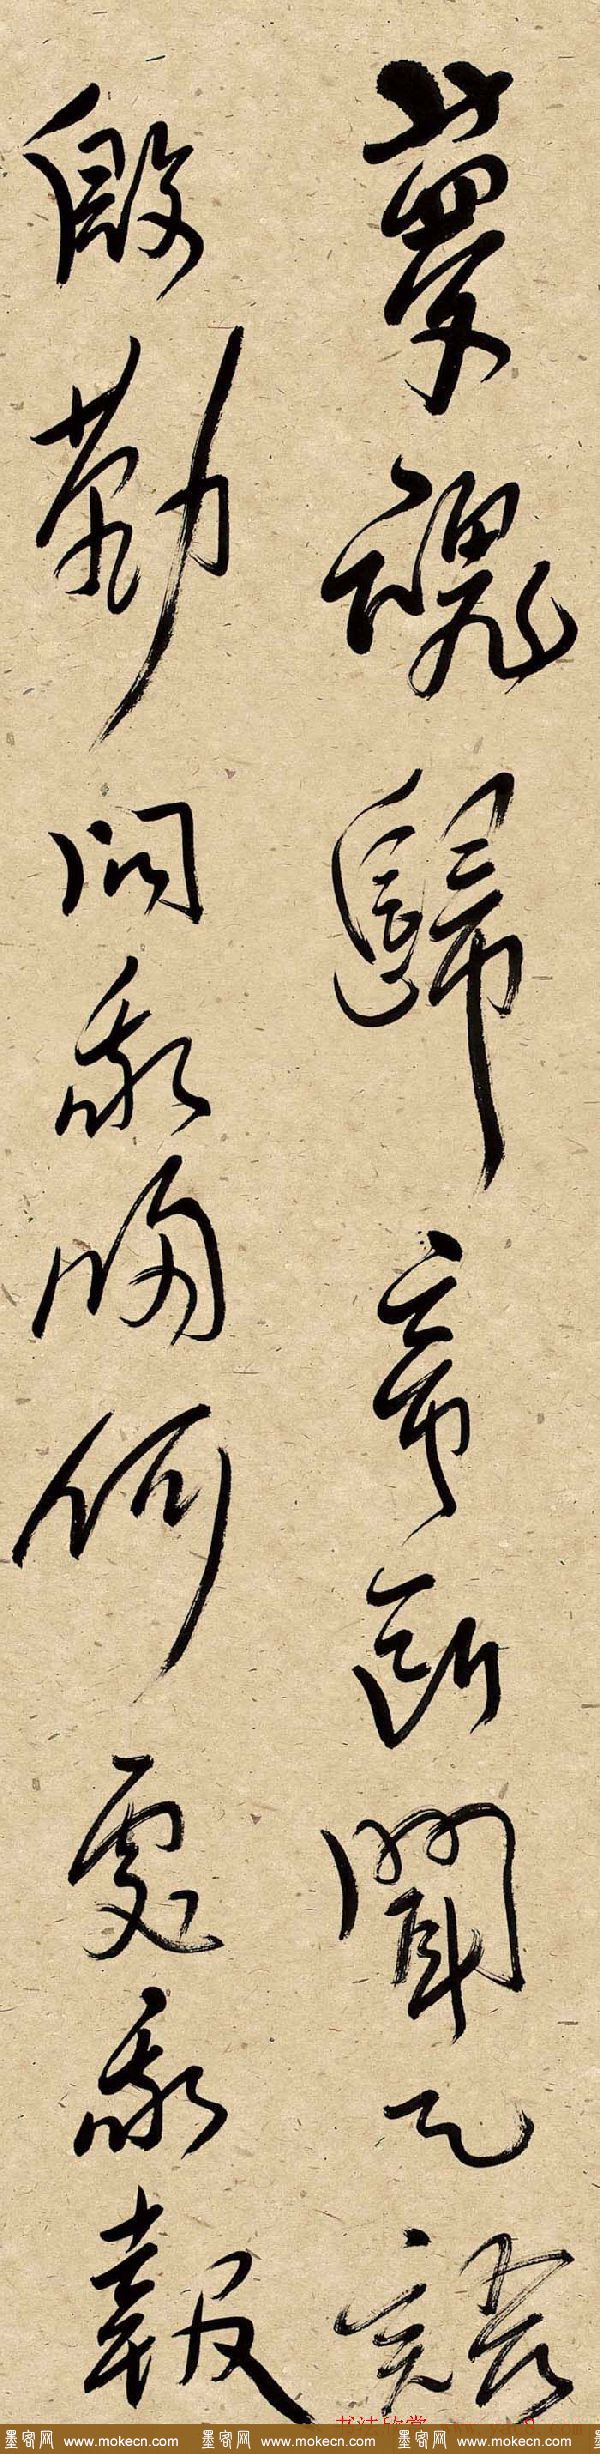 夢魂歸帝所聞天語
殷勤問我歸何處我報
书法欣赏
墨客网 www.mokecn.com 墨客网 www.mokecn.com 墨客网 www.mokecn.com